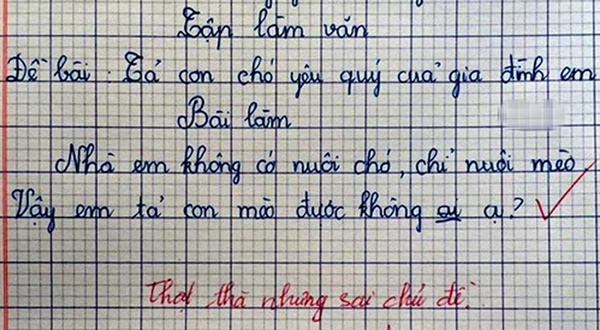 Tập làm văn
Đề bài: Tả con chó yêu quý của gia đình em
Bài làm
Nhà em không có nuôi chó, chỉ nuôi mèo
Vậy em tả con mèo được không ạ?
Thật thà nhưng sai chủ đề.